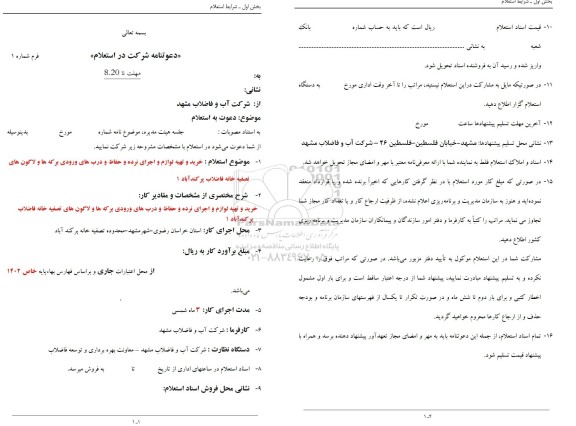 بخش اول ـ شرایط استعلام
بسمه تعالی
«دعوتنامه شرکت در استعلام»
فرم شماره ۱
مهلت تا 8.20
به:
نشانی:
از: شرکت آب و فاضلاب مشهد
موضوع: دعوت به استعلام
به استناد مصوبات : جلسه هیئت مدیره، موضوع نامه شماره مورخ بدینوسیله
از شما دعوت می‌شود در استعلام با مشخصات مشروحه زیر شرکت نمایید.
۱- موضوع استعلام : خرید و تهیه لوازم و اجرای نرده و حفاظ و درب های ورودی برکه ها و لاگون های
تصفیه خانه فاضلاب پرکندآباد ۱
۲- شرح مختصری از مشخصات و مقادیر کار:
خرید و تهیه لوازم و اجرای نرده و حفاظ و درب های ورودی برکه ها و لاگون های تصفیه خانه فاضلاب
پرکندآباد ۱
۳- محل اجرای کار: استان خراسان رضوی-شهرمشهد-محدوده تصفیه خانه پرکند آباد
۴- مبلغ برآورد کار به ریال:
از محل اعتبارات جاری و براساس فهارس بهاءپایه خاص ۱۴۰۲
می‌باشد.
۵- مدت اجرای کار: ۳ ماه شمسی
۶- کارفرما : شرکت آب و فاضلاب مشهد
۷- دستگاه نظارت : شرکت آب و فاضلاب مشهد – معاونت بهره برداری و توسعه فاضلاب
۸- اسناد استعلام در ساعتهای اداری از تاریخ تا به فروش میرسد.
۹- نشانی محل فروش اسناد استعلام:
۱-۱
بخش اول ـ شرایط استعلام
۱۰- قیمت اسناد استعلام ریال است که باید به حساب شماره بانک
شعبه به نشانی
واریز شده و رسید آن به فروشنده اسناد تحویل شود.
۱۱- در صورتیکه مایل به مشارکت دراین استعلام نیستید، مراتب را تا آخر وقت اداری مورخ به دستگاه
استعلام گزار اطلاع دهید.
۱۲- آخرین مهلت تسلیم پیشنهادها ساعت مورخ
۱۳- نشانی محل تسلیم پیشنهادها: مشهد-خیابان فلسطین-فلسطین ۲۶ –شرکت آب و فاضلاب مشهد
۱۴- اسناد و املاک استعلام فقط به نماینده شما با ارائه معرفی‌نامه معتبر با مهر و امضای مجاز تحویل خواهد شد.
۱۵- در صورتی که مبلغ کار مورد استعلام با در نظر گرفتن کارهایی که اخیراً برنده شده و یا قرارداد منعقد
نموده‌اید و هنوز به سازمان مدیریت و برنامه‌ریزی اعلام نشده، از ظرفیت ارجاع کار و یا تعداد کار مجاز شما
تجاوز می نماید. مراتب را کتباً به کارفرما و دفتر امور سازندگان و پیمانکاران سازمان مدیریت و برنامه‌ریزی
کشور اطلاع دهید.
مشارکت شما در این استعلام موکول به تأیید دفتر مزبور می‌باشد. در صورتی که مراتب فوق را رعایت
نکرده و به تسلیم پیشنهاد مبادرت نمایید، پیشنهاد شما از درجه اعتبار ساقط است و برای بار اول مشمول
اخطار کتبی و برای بار دوم تا شش ماه و در صورت تکرار تا یکسال از فهرستهای سازمان برنامه و بودجه
حذف و از ارجاع کارها محروم خواهید گردید.
۱۶- تمام اسناد استعلام، از جمله این دعوتنامه باید به مهر و امضای مجاز تعهدآور پیشنهاد دهنده برسد و همراه با
پیشنهاد قیمت تسلیم شود.
۱-۲